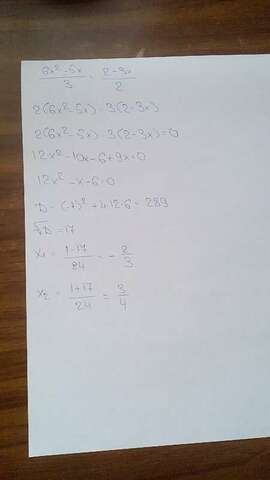 6x²-5x/3 = 2-3x/2
2(6x²-5x) = 3(2-3x)
2(6x²-5x) - 3(2-3x)=0
12x² - 10x - 6 + 9x = 0
12x² - x - 6 = 0
D = (-1)² + 4·12·6 = 289
√D = 17
x₁ = 1-17/24 = - 2/3
x₂ = 1+17/24 = 3/4